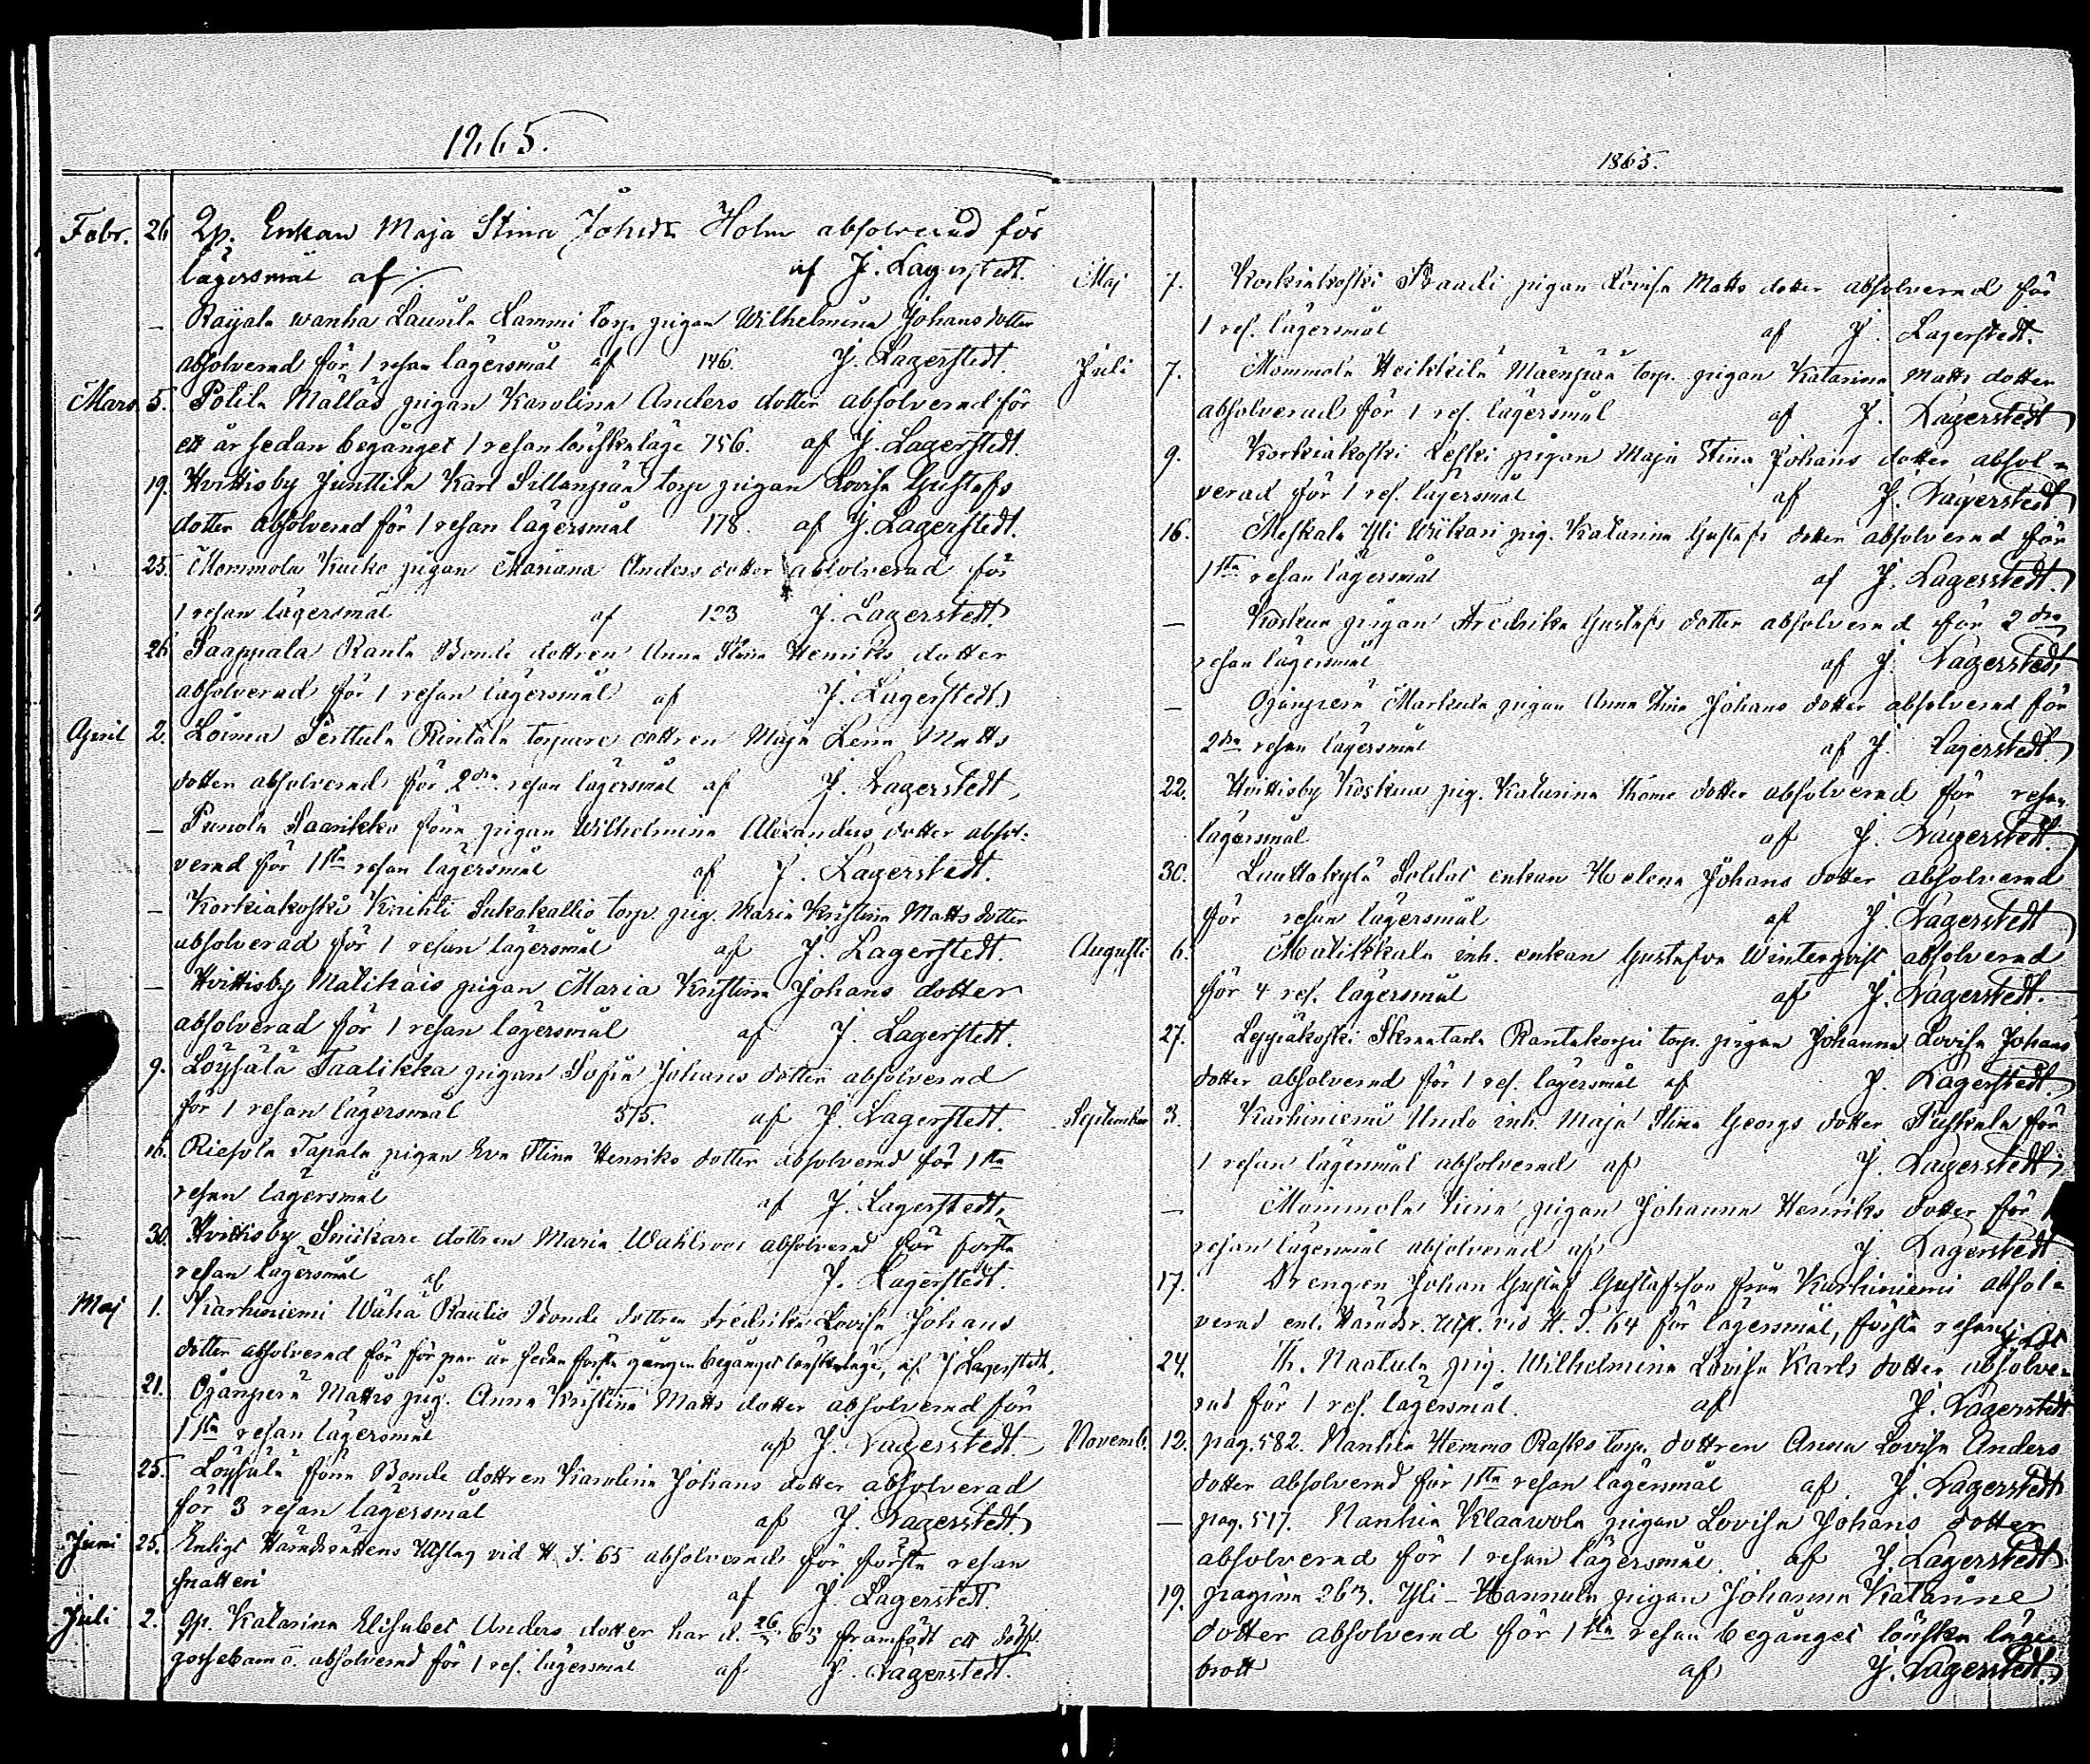 1865.
Febr. 26 Qp. Enkan Maja Stina Johsdr Holm absolverad för
lägersmål af ⁒ af J. Lagerstedt.
— Raijala wanha Laurila Lammi torp. pigan Wilhelmina Johans dotter
absolverad för 1 resan lägersmål af 146. J. Lagerstedt.
Mars 5. Pohila Mälläs pigan Karolina Anders dotter absolverad för
ett år sedan begånget 1 resan lönskaläge 756. af J. Lagerstedt.
19. Hvittisby Junttila Karl Sillanpää torp pigan Lovisa Gustafs
dotter absolverad för 1 resan lägersmål 178. af J. Lagerstedt.
25. Mommola Kucko pigan Mariana Anders dotter absolverad för
1 resan lägersmål af 123 J. Lagerstedt
26 Saappala Ranta Bonde dottren Anna Stina Henriks dotter
absolverad för 1 resan lägersmål af J. Lagerstedt
April 2. Loima Perttula Rintala torpare dottren Maja Lena Matts
dotter absolverad för 2dra resan lägersmål af J. Lagerstedt
— Punola Saarikko pigan Wilhelmina Alexanders dotter absol-
verad för 1sta resan lägersmål af J. Lagerstedt.
— Korkiakoski Knihti Sukakallio torp. pig. Maria Kristina Matts dotter
absolverad för 1 resan lägersmål af J. Lagerstedt.
— Hvittisby Malikais pigan Maria Kristina Johans dotter
absolverad för 1 resan lägersmål af J. Lagerstedt.
9. Löysälä Taalikka pigan Sofia Johans dotter absolverad
för 1 resan lägersmål 575. af J. Lagerstedt.
16. Riesola Tapala pigan Eva Stina Henriks dotter absolverad för 1sta
resan lägersmål af J. Lagerstedt.
30. Hvittisby Snickare dottren Maria Wahlroos absolverad för första
resan lägersmål af J. Lagerstedt.
Maj 1. Karhiniemi Wähä Raulio Bonde dottren Fredrika Lovisa Johans
dotter absolverad för för par år sedan första gången begånget lönskaläge, af J Lagerstedt.
21. Ojänperä Matts pig. Anna Kristina Matts dotter absolverad för
1sta resan lägersmål af J. Lagerstedt
25. Löysälä Bonde dottren Karolina Johans dotter absolverad
för 3 resan lägersmål af J. Lagerstedt.
Juni 25. Enligt Häradsrättens Utslag vid H. T. 65 absolverad för första resan
snatteri af J. Lagerstedt.
Juli 2. Qp. Katarina Elisabet Anders dotter har d. 26/5 65 framfödt ett dödf.
gossebarn o. absolverad för 1 res. lägersmål af J. Lagerstedt.
1865.
Maj 7. Korkiakoski Kraadi pigan Lovisa Matts dotter absolverad för
1 res. lägersmål af J. Lagerstedt.
Juli 7. Mommola Heikkilä Mäenpää torp. pigan Katarina Matts dotter
absolverad för 1 res. lägersmål af J. Lagerstedt
9. Korkiakoski Leski pigan Maja Stina Johans dotter absol-
verad för 1 res. lägersmål af J. Lagerstedt
16. Meskala Yli Wiikari pig. Katarina Gustafs dotter absolverad för
1sta resan lägersmål af J. Lagerstedt.
— Koskua pigan Fredrika Gustafs dotter absolverad för 2dra
resan lägersmål af J. Lagerstedt
— Ojänperä Markula pigan Anna Stina Johans dotter absolverad för
2dra resan lägersmål af J. Lagerstedt
22. Hvittisby Koskua pig. Katarina Thome dotter absolverad för resan
lägersmål af J. Lagerstedt.
30. Lauttakylä Soldat enkan Helena Johans dotter absolverad
för resan lägersmål af J. Lagerstedt
Augusti 6. Mulikkala inh. enkan Gustafva Winterqvist absolverad
för 4 res. lägersmål af J. Lagerstedt.
27. Leppäkoski Skrantarla Rantakorpi torp. pigan Johanna Lovisa Johans
dotter absolverad för 1 res. lägersmål af J. Lagerstedt.
September 3. Karhiniemi Undo inh. Maja Stina Georgs dotter för
1 resan lägersmål absolverad af J. Lagerstedt
— Mommola pigan Johanna Henriks dotter för
resan lägersmål absolverad af J. Lagerstedt
17. Drengen Johan Gustaf Gustafsson från Karhiniemi absol-
verad enl. Häradsr. Utsl. vid H. T. 64 för lägersmål, första resan
24. Th. Naatula pig. Wilhelmina Lovisa Karls dotter absolve-
rad för 1 res. lägersmål. af J. Lagerstedt
Novemb. 12. pag. 582. Nanhia Hemmo Rasko torp. dottren Anna Lovisa Anders
dotter absolverad för 1sta resan lägersmål af J. Lagerstedt
— pag. 517. Nanhia Klaawola pigan Lovisa Johans dotter
absolverad för 1 resan lägersmål. af J. Lagerstedt
19. pagina 263. Yli-Hannula pigan Johanna Katarine
dotter absolverad för 1sta resan begånget lönska läge
brott af J. Lagerstedt